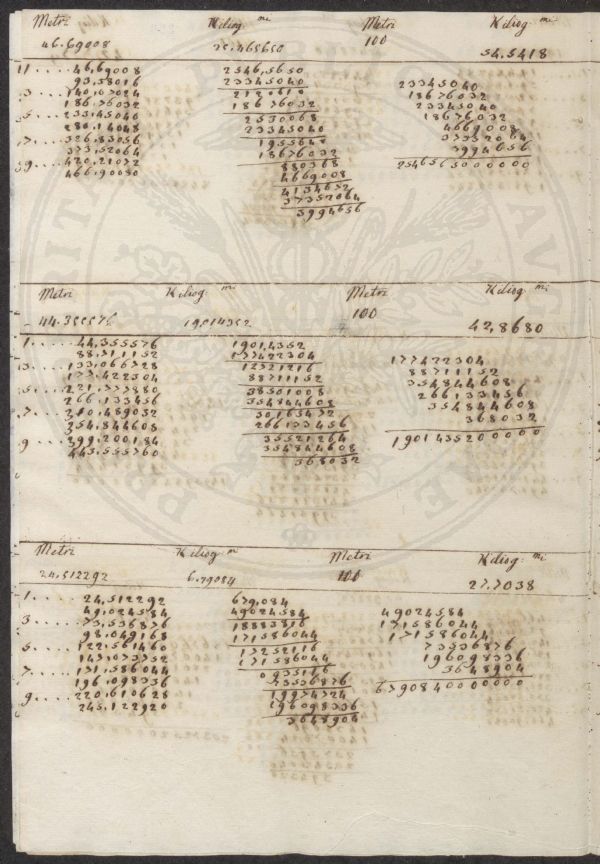 Metri Kiliog mi Metri Kiliog mi
46.69008 25.465650 100 54.5418
11 .... 46,69008 2546,5650
93,38016 23345040 23345040
.3 .... 140,07024 2120610 18676032
186,76032 18676032 23345040
.5 .... 233,45040 2530068 18676032
280,14048 23345040 4669008
.7 .... 326,83056 1955640 37352064
373,52064 18676032 3994656
.9 .... 420,21072 880368 254656500000
466,90080 4669008
4134672
37352064
3994656
Metri Kiliog mi Metri Kiliog mi
44.355576 19014352 100 42,8680
1 ..... 44,355576 1901,4352
88,711152 177422304 177422304
.3 ..... 133,066728 12721216 88711152
177,422304 88711152 354844608
.5 ..... 221,777880 38501008 266133456
266,133456 354844608 354844608
.7 ..... 310,489032 30165472 368032
354,844608 266133456 190143520000
.9 ..... 399,200184 35521264
443,555760 354844608
368032
Metri Kiliog mi Metri Kiliog mi
24,512292 6.79084 100 27.7038
1 ..... 24,512292 679,084
49,024584 49024584 49024584
3 ..... 73,536876 18883816 171586044
98,049168 171586044 171586044
5 ..... 122,561460 17252116 73536876
147,073752 171586044 196098336
7 ..... 171,586044 0935116 3648904
196,098336 73536876 67908400000
9 ..... 220,610628 19974724
245,122920 196098336
3648904